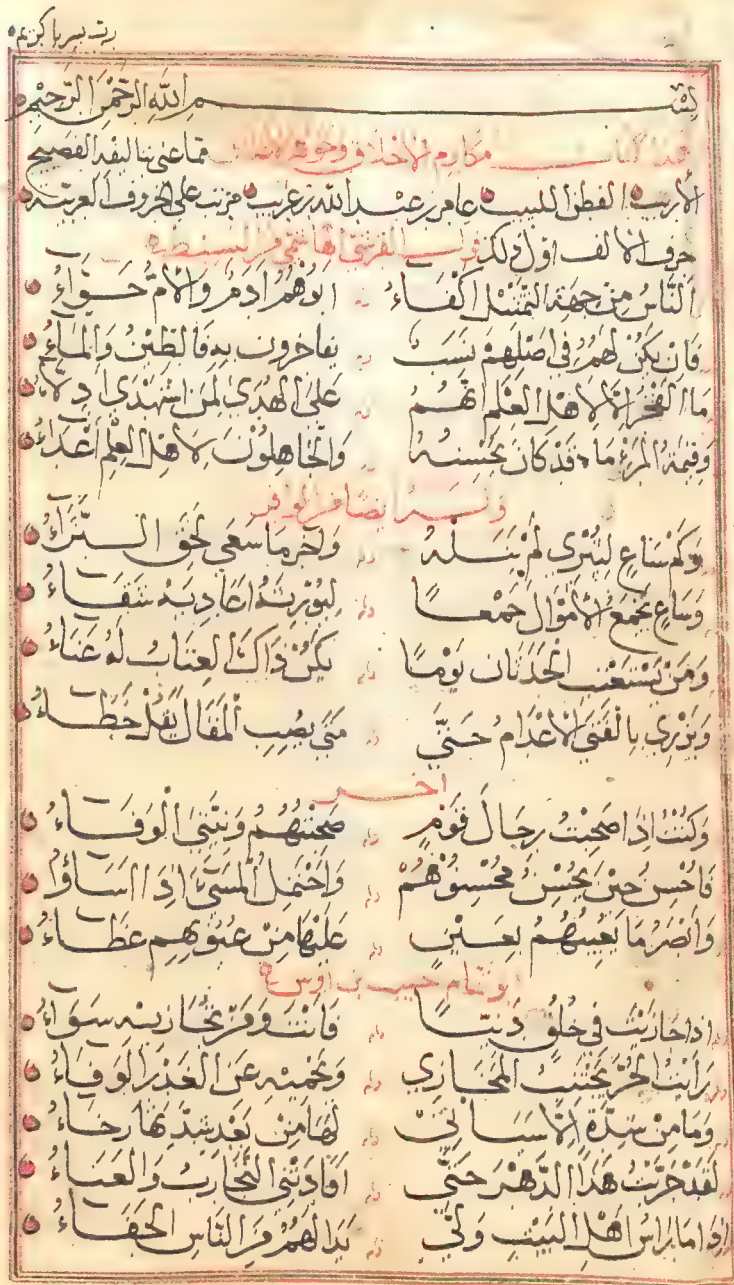 رب يسر يا كريم
بسم الله الرحمن الرحيم
هذا كتاب مكارم الاخلاق مما عنى بتاليفه الفصيح
الأريب الفطن اللبيب عامر بن عبد الله بن غريب مرتب على الحروف العربية
حرف الألف اول ذلك القرشي الهاشمي من البسيط
النَّاسُ مِنْ جِهَةِ التِّمْثَالِ أَكْفَاءُ ابُوهُمُ آدَمُ وَالأُمُّ حَوَّاءُ
فَانْ يَكُنْ لَهُمُ فِي اصْلِهِمْ نَسَبٌ يفاخرون بِهِ فَالطّينُ وَالْمَاءُ
مَا الفَخْرُ الا لاهْلِ العِلْمِ انّهُمُ عَلَى الهُدَى لِمَنِ اسْتَهْدَى ادِلّاءُ
وَقِيمَةُ المَرْءِ مَا قَدْ كَانَ يُحْسِنُهُ وَالْجَاهِلُونَ لِاهْلِ العِلْمِ اعْدَاءُ
وله ايضا من الوافر
وَكَمْ سَاعٍ لِيُثْرِي لَمْ يَنَلْهُ وَآخَرُ مَا سَعَى لَحِقَ الثَّرَاءُ
وَسَاعٍ يَجْمَعُ الأَمْوَالَ جَمْعًا لِيُورِثَهُ اعَادِيَهُ شَقَاءُ
وَمَنْ يَسْتَعْتِبِ الحَدَثَانَ يَوْمًا يَكُنْ ذَاكَ العِتَابُ لَهُ عَنَاءُ
وَيُزْرِي بِالْفَتَى الإعْدَامُ حَتَّى مَتَى يُصِبِ الْمَقَالَ يَقُلْ خَطَاءُ
اخر
وَكُنْتُ اذَا صَحِبْتُ رِجَالَ قَوْمٍ صَحِبْتُهُمُ وَنِيَّتِي الْوَفَاءُ
فَاحْسِنُ حِينَ يُحْسِنُ مُحْسِنُوهُمْ وَاحْتَمِلُ الْمُسِيءَ اذَا اسَاؤا
وَانْصُرُ مَا يَعِيبُهُمُ بِعَيْنٍ عَلَيْهَا مِنْ عُيُوبِهِمِ غِطَاءُ
ابو تمام حبيب بن اوس
اذا جَارَيْتَ فِي خُلُقٍ دَنِيًّا فَانْتَ وَمَنْ تُجَارِيهِ سَوَاءُ
رَايْتُ الحُرَّ يَجْتَنِبُ الْمَخَازِي وَيَحْمِيهِ عَنِ الْغَدْرِ الْوَفَاءُ
وَمَا مِنْ شِدَّةٍ الّا سَيَاتِي لَهَا مِنْ بَعْدِ شِدَّتِهَا رَخَاءُ
لَقَدْ جَرَّبْتُ هَذَا الدَّهْرَ حَتَّى افَادَتْنِي التَّجَارِبُ وَالْعَنَاءُ
اذا مَا رَاسُ اهْلِ الْبَيْتِ وَلّى بَدَا لَهُمُ مِنَ النَّاسِ الْجَفَاءُ